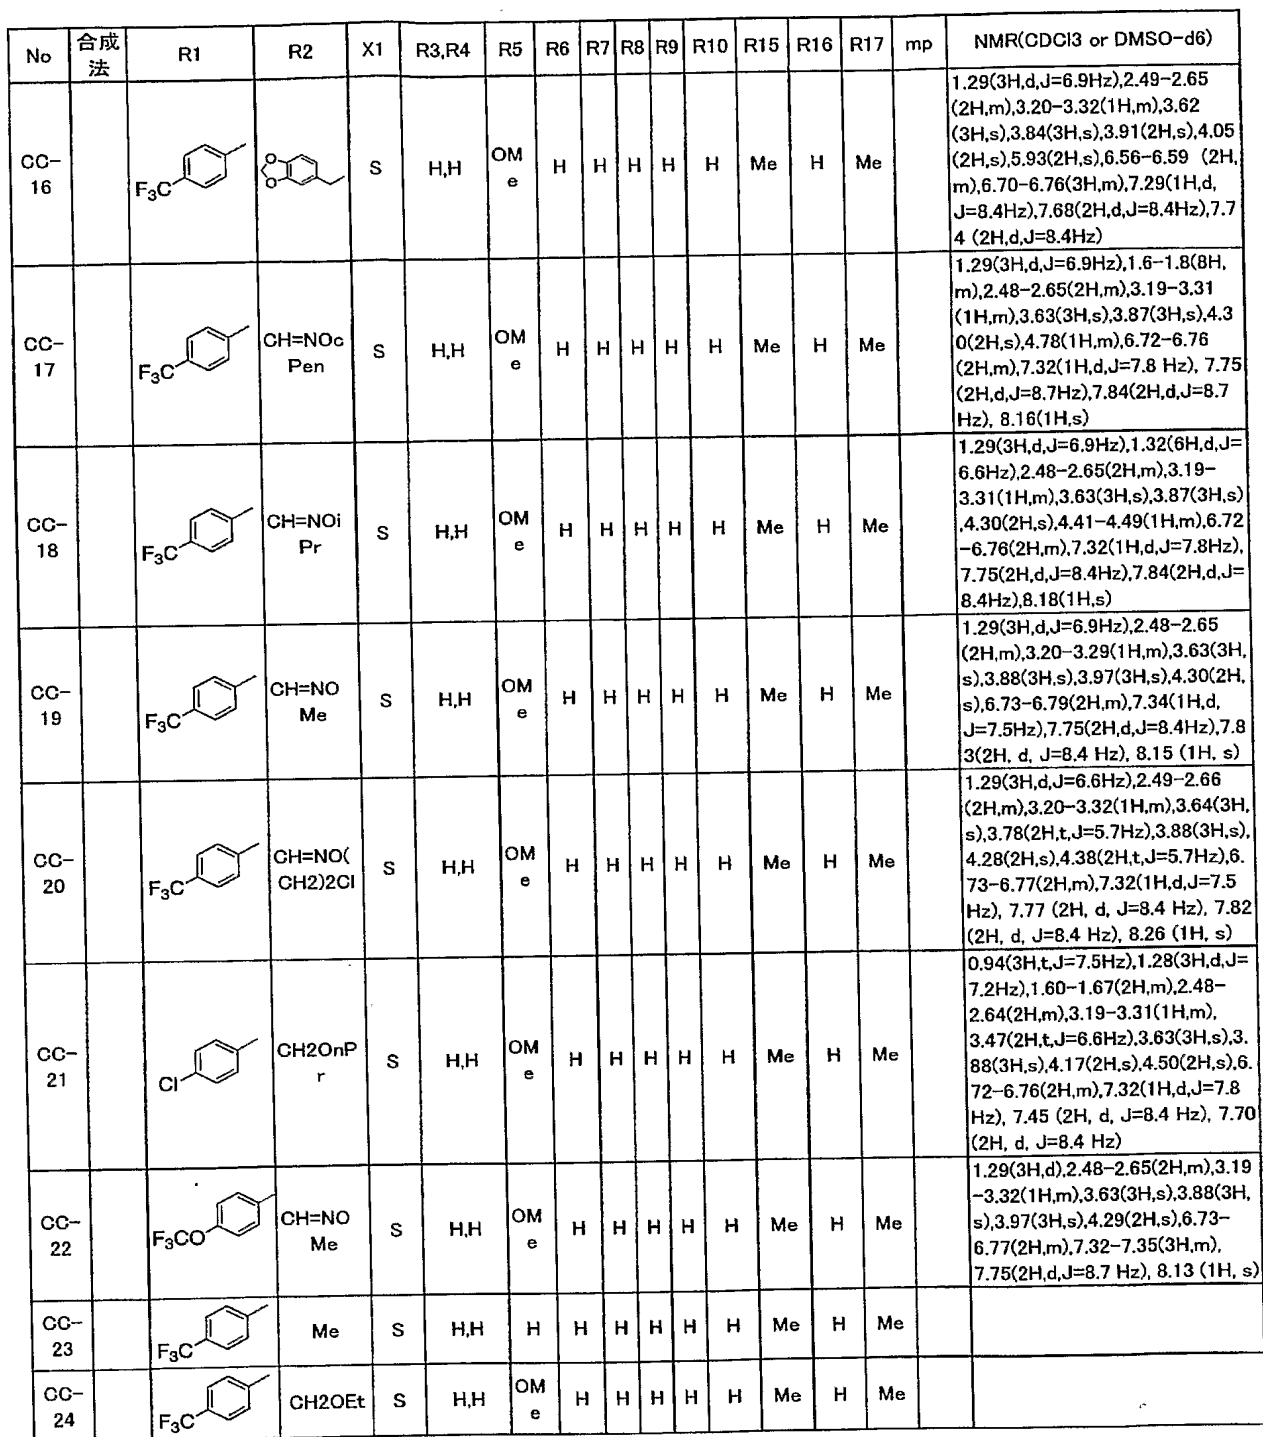 No 合成法 R1 R2 X1 R3,R4 R5 R6 R7 R8 R9 R10 R15 R16 R17 mp NMR(CDCl3 or DMSO-d6)
CC-16 F₃C O O S H,H OMe H H H H H Me H Me
1.29(3H,d,J=6.9Hz),2.49-2.65
(2H,m),3.20-3.32(1H,m),3.62
(3H,s),3.84(3H,s),3.91(2H,s),4.05
(2H,s),5.93(2H,s),6.56-6.59 (2H,
m),6.70-6.76(3H,m),7.29(1H,d,
J=8.4Hz),7.68(2H,d,J=8.4Hz),7.7
4 (2H,d,J=8.4Hz)
CC-17 F₃C CH=NOcPen S H,H OMe H H H H H Me H Me
1.29(3H,d,J=6.9Hz),1.6-1.8(8H,
m),2.48-2.65(2H,m),3.19-3.31
(1H,m),3.63(3H,s),3.87(3H,s),4.3
0(2H,s),4.78(1H,m),6.72-6.76
(2H,m),7.32(1H,d,J=7.8 Hz), 7.75
(2H,d,J=8.7Hz),7.84(2H,d,J=8.7
Hz), 8.16(1H,s)
CC-18 F₃C CH=NOiPr S H,H OMe H H H H H Me H Me
1.29(3H,d,J=6.9Hz),1.32(6H,d,J=
6.6Hz),2.48-2.65(2H,m),3.19-
3.31(1H,m),3.63(3H,s),3.87(3H,s)
,4.30(2H,s),4.41-4.49(1H,m),6.72
-6.76(2H,m),7.32(1H,d,J=7.8Hz),
7.75(2H,d,J=8.4Hz),7.84(2H,d,J=
8.4Hz),8.18(1H,s)
CC-19 F₃C CH=NOMe S H,H OMe H H H H H Me H Me
1.29(3H,d,J=6.9Hz),2.48-2.65
(2H,m),3.20-3.29(1H,m),3.63(3H,
s),3.88(3H,s),3.97(3H,s),4.30(2H,
s),6.73-6.79(2H,m),7.34(1H,d,
J=7.5Hz),7.75(2H,d,J=8.4Hz),7.8
3(2H, d, J=8.4 Hz), 8.15 (1H, s)
CC-20 F₃C CH=NO(CH2)2Cl S H,H OMe H H H H H Me H Me
1.29(3H,d,J=6.6Hz),2.49-2.66
(2H,m),3.20-3.32(1H,m),3.64(3H,
s),3.78(2H,t,J=5.7Hz),3.88(3H,s),
4.28(2H,s),4.38(2H,t,J=5.7Hz),6.
73-6.77(2H,m),7.32(1H,d,J=7.5
Hz), 7.77 (2H, d, J=8.4 Hz), 7.82
(2H, d, J=8.4 Hz), 8.26 (1H, s)
CC-21 Cl CH2OnPr S H,H OMe H H H H H Me H Me
0.94(3H,t,J=7.5Hz),1.28(3H,d,J=
7.2Hz),1.60-1.67(2H,m),2.48-
2.64(2H,m),3.19-3.31(1H,m),
3.47(2H,t,J=6.6Hz),3.63(3H,s),3.
88(3H,s),4.17(2H,s),4.50(2H,s),6.
72-6.76(2H,m),7.32(1H,d,J=7.8
Hz), 7.45 (2H, d, J=8.4 Hz), 7.70
(2H, d, J=8.4 Hz)
CC-22 F₃CO CH=NOMe S H,H OMe H H H H H Me H Me
1.29(3H,d),2.48-2.65(2H,m),3.19
-3.32(1H,m),3.63(3H,s),3.88(3H,
s),3.97(3H,s),4.29(2H,s),6.73-
6.77(2H,m),7.32-7.35(3H,m),
7.75(2H,d,J=8.7 Hz), 8.13 (1H, s)
CC-23 F₃C Me S H,H H H H H H H Me H Me
CC-24 F₃C CH2OEt S H,H OMe H H H H H Me H Me